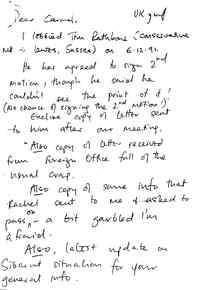 UK gulf
Dear Carmel,
I lobbied Tim Rathbone (Conservative
MP in Lewes, Sussex) on 6.12.91.
He has agreed to sign 2nd
motion, though he said he
couldn't see the point of it!
(No chance of signing the 2nd motion!)
Enclose copy of letter sent
to him after our meeting.
Also copy of letter received
from Foreign Office full of the
usual crap.
Also copy of some info that
Rachel sent to me & asked to
pass on – a bit garbled I'm
afraid.
Also, latest update on
situation for your
general info.